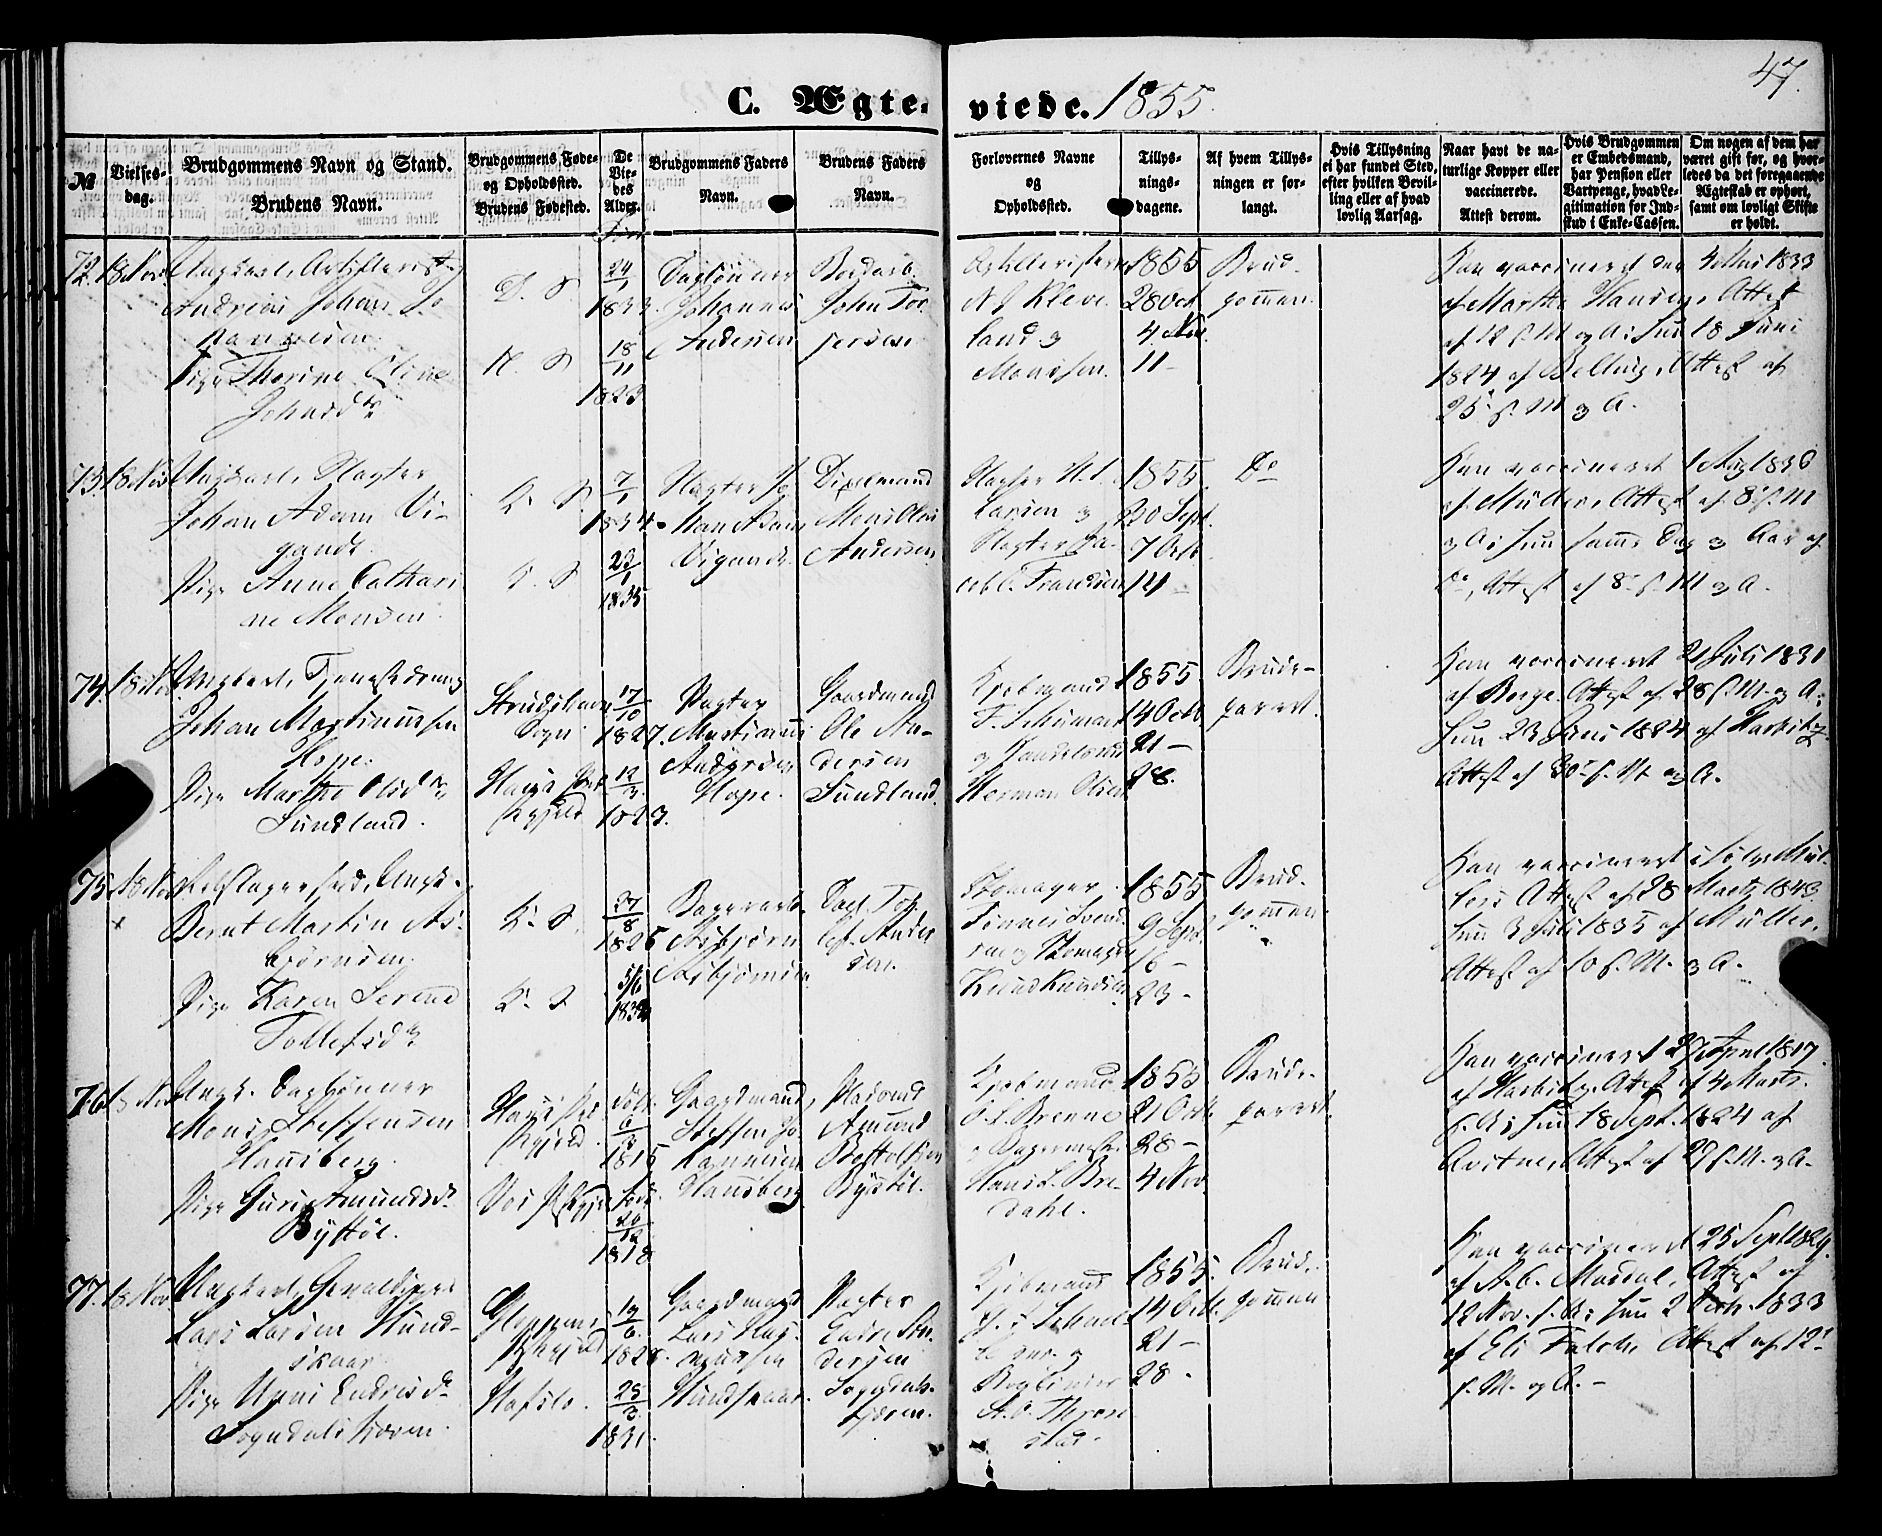 47.
C. Ægte-
viede. 1855.
№
Vielses-
dag.
Brudgommens Navn og Stand.
Brudens Navn.
Brudgommens Føde-
og Opholdssted.
Brudens Fødested.
De
Vie-
des
Alder.
Brudgommens Faders
Navn.
Brudens Faders
Navn.
Forlovernes Navne
og
Opholdssted.
Tillys-
nings-
dagene.
Af hvem Tillys-
ningen er for-
langt.
Hvis Tillysning
ei har fundet Sted,
efter hvilken Bevil-
ling eller af hvad
lovlig Aarsag.
Naar havt de na-
turlige Kopper eller
vaccinerede.
Attest derom.
Hvis Brudgommen
er Embedsmand,
har Pension eller
Vartpenge, hvad Le-
gitimation for Ind-
skud i Enke-Cassen.
Om nogen af dem har
været gift før, og hvor-
ledes da det foregaaende
Ægteskab er ophørt,
samt om lovligt Skifte
er holdt.
72. 18 Nov. Ungkarl, Artillerist
Andreas Johan Jo
hannesen
Pige Thorine Oline
Johnsdtr
24/1
1833.
18/11
1823
Daglønner
Johannes
Andersen
Bordarb.
John Tor
jersen
N J Kleve
land og
Monssen.
1855
28 Oct
4 Nov.
11 –
Brud-
gommen.
Han vaccineret den 4 Mai 1833
af Marthe Hansen, Attest
af 12 f. M og A; hun 18 Juni
1824 af Belling, Attest af
25 f. M og A.
73. 18 Nov Ungkarl, Slagter
Johan Adam Vi-
gandt.
Pige Anne Cathari
ne Monsen.
7/1
1834.
23/1
1835
Slagter Jo
han Adam
Vigandt.
Mons Olai
Andersen
Slagter
Larsen og
Slagter Ja-
cob C. Frandsen
1855.
30 Sept.
7 Octb.
14 –
Do
Han vaccineret 1 Aug 1836
af Müller, Attest af 8 f. M
og A; hun samme Dag og Aar af
Do, Attest af 8 f. M og A.
74. 18 Nov Ungkarl, Tjenestedreng
Johan Martinussen
Hope.
Pige Marthe Olsdtr
Sundland.
Strudshavn
Sogn
Houg Præ
stegjeld
17/10
1827.
12/3
1823.
Pagter
Martinus
Andersen
Hope.
Gaardmand
Ole An-
dersen
Sundland.
Kjøbmand
F. Schumann
og
Herman Olsen
1855
14 Octb
21 –
28.
Brude-
parret.
Han vaccineret 21 Juli 1831
af Berge. Attest af 28 f. M. og A.
hun 23 Juni 1824 af Harbitz.
Attest af 30 f. M. og A.
75. 18 Nov Rebslagersvend, Ungk.
Bernt Martin As-
björnsen.
Pige Karen Serene
Tollefsdtr
27/8
1825
5/6
1834
Asbjørn
Asbjørnsen
Tol-
lef Ander
sen.
Skomager
Tønnes Svend-
sen og Skomager
Knud Knudsen
1855
9 Sept.
16 –
23 –
Brud-
gommen.
Attest af 28 Marts 1843.
hun 3 Juli 1835 af Müller,
Attest af 10 f. M. og A.
76. Nov Ungk. Dagløønner
Mons Steffensen
Hausberg.
Pige Guri Amundsdtr
Bystöl.
Houg Præ
stegjeld.
Vos Pstgjeld
født
6/3
1815
født
20/12
1818
Gaardmand
Steffen Jo
hannesen
Hausberg
Pladsmd
Amund
Bottolfsen
Bystöl.
Kjøbmand
Brenne
Hans L. Bre-
dahl.
1855
21 Octb
28 –
4 Nov.
Brude-
parret.
Han vaccineret 27 April 1817.
af Harbitz, Attest af 4 Marts
f. A; hun 18 Sept. 1824 af
Attest af 27 f. M. og A.
77. 18 Nov Ungkarl, Gevaldiger
Lars Larsen Hund-
skaar.
Pige Unni Endresdtr
Sogndalskjæren.
Gloppens
Pstgjeld
Hafslo.
19/6
1828.
25/3
1831.
Gaardmand
Lars Ras-
mussen
Hundskaar.
Pagter
Endre An-
dersen
Sogndals-
kjæren.
Kjøbmand
og
Bogbinder
1855.
14 Octb.
21 –
28 –
Brud-
gommen
Han vaccineret 25 Sept 1829.
af A. C. Mardal, Attest af
12 Nov. f. A; hun 2 Octb. 1833
af Eli Falch, Attest af 12
f. M. og A. –